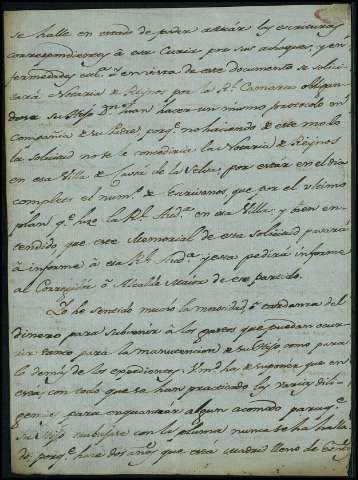 se halle en estado de poder actuar las escrituras
correspondientes à esta Curia por sus achaques, y en-
fermedades ett.ª en vista de este documento se solici-
tará Notaria de Reynos por la R.l Camara obligan-
dose su Hijo D.n Juan hacer un mismo protocolo en
Compañia de su Padre, porq.e no haciendo de este modo
la Solicitud no se le concediria la Notaria de Reynos
en esa Villa de Cassá de la Selva, por estár en el dia
completo el num.º de Escrivanos, que por el ultimo
plan q.e hizo la R.l Aud.a en esa Villa; y bien en-
tendido que este Memorial de esta Solicitud pasará
à informe à esa R.l Aud.a y esta pedirá informe
al Corregidor ò Alcalde Maior de ese partido.
Yo he sentido mucho la morosidad, ò tardanza del
dinero para subvenir à los gastos que puedan ocur-
rir tanto para la manutencion de su Hijo como para
lo demás de los expedientes. Vmd ha de suponer que en
esta, con todo que se han practicado las varias dili-
gencias para encontrár algun acomodo para q.e
su Hijo trabajase con la pluma nunca se ha halla-
do, porq.e hace dos años que está Madrid lleno de